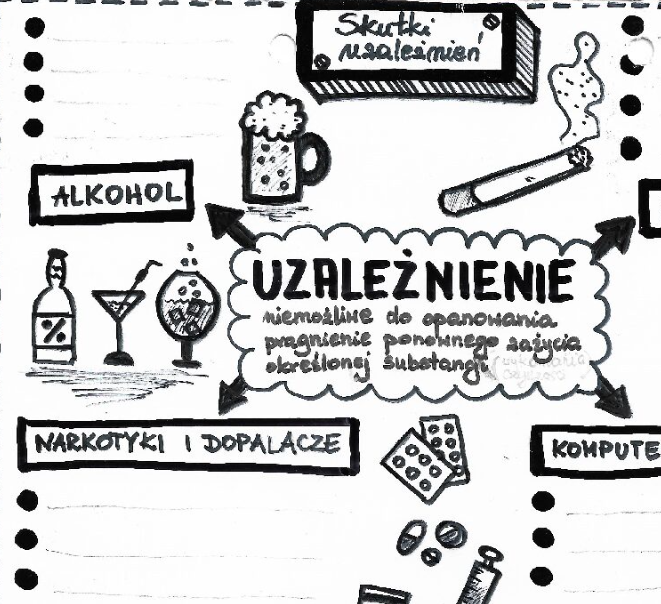 Skutki
uzależnień
ALKOHOL
%
UZALEŻNIENIE
niemożliwe do opanowania
pragnienie ponownego zażycia
określonej substancji
NARKOTYKI I DOPALACZE
KOMPUTE